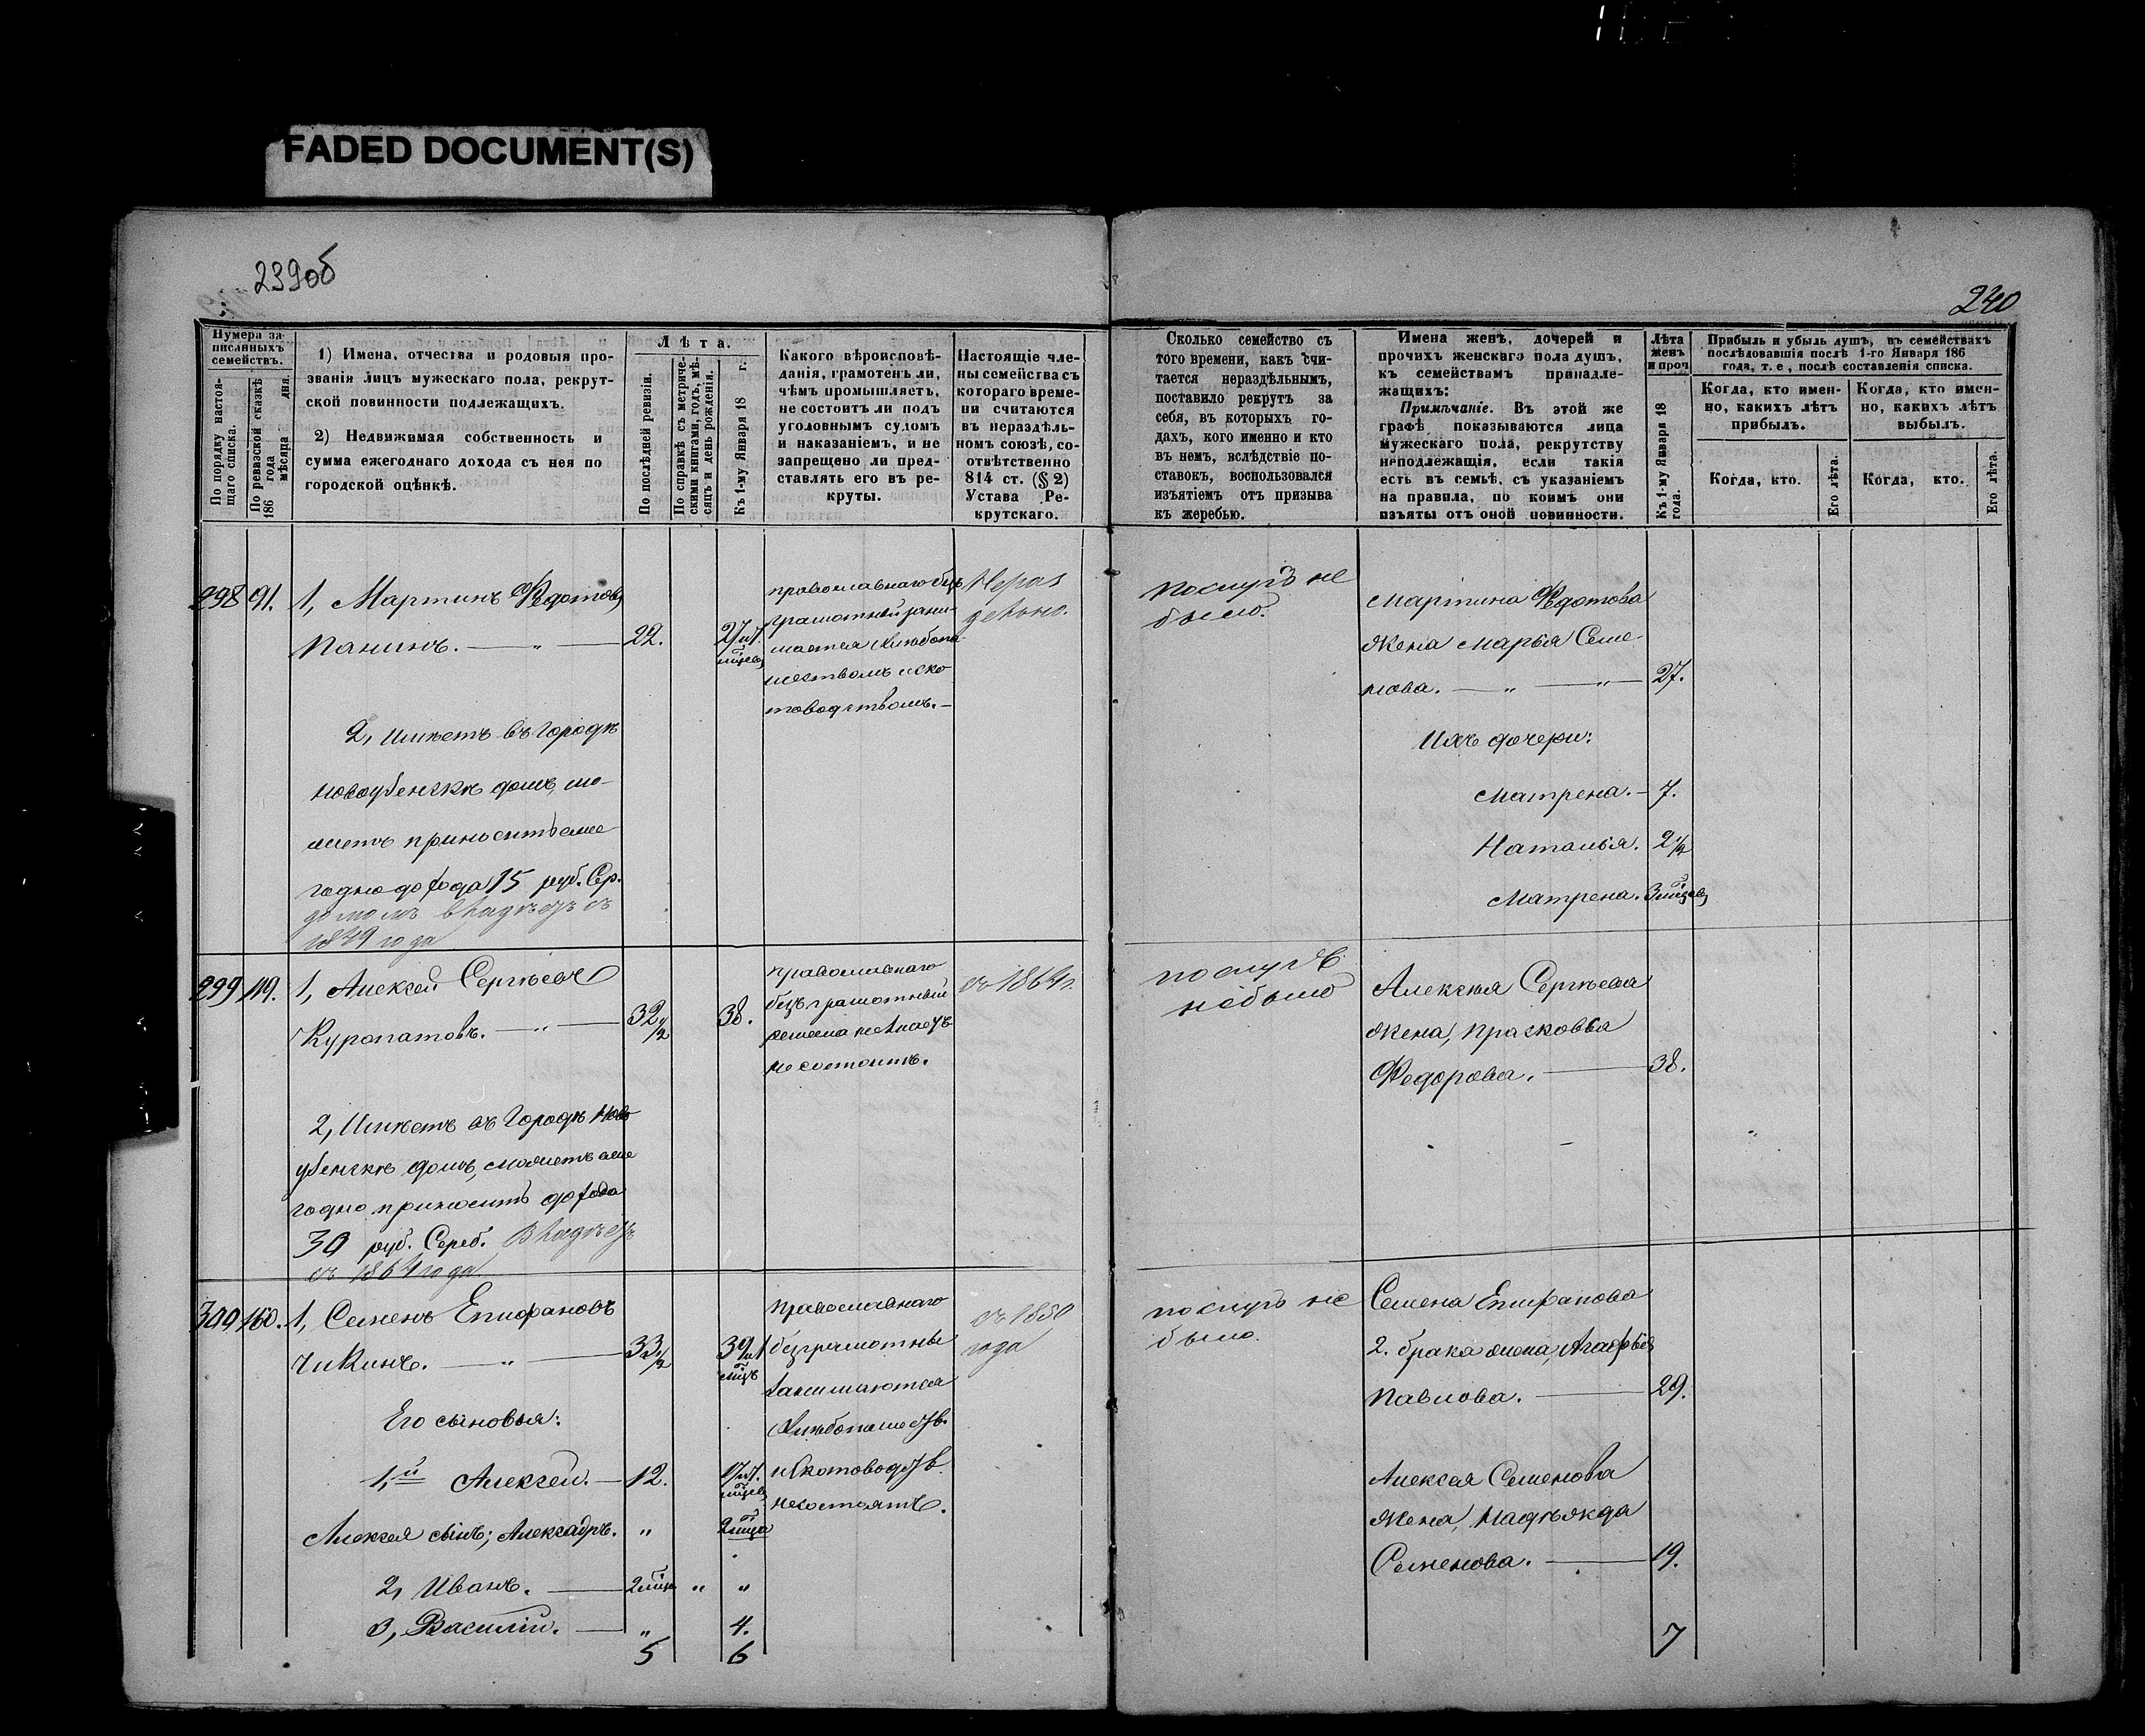 FADED DOCUMENT(S)
239об
240
Нумера за-
писанныхъ
семействъ.
По порядку настоя-
щаго списка.
По ревизской сказкѣ
186 года
мѣсяца дня.
1) Имена, отчества и родовыя про-
званія лицъ мужескаго пола, рекрут-
ской повинности подлежащихъ.
2) Недвижимая собственность и
сумма ежегоднаго дохода съ нея по
городской оцѣнкѣ.
Лѣта.
По послѣдней ревизіи.
По справкѣ съ метриче-
скими книгами, годъ, мѣ-
сяцъ и день рожденія.
Къ 1-му Января 18 г.
Какого вѣроисповѣ-
данія, грамотенъ ли,
чѣмъ промышляетъ,
не состоитъ ли подъ
уголовнымъ судомъ
и наказаніемъ, и не
запрещено ли пред-
ставлять его въ ре-
круты.
Настоящіе чле-
ны семейства съ
котораго време-
ни считаются
въ нераздѣль-
номъ союзѣ, со-
отвѣтственно
814 ст. (§ 2)
Устава Ре-
крутскаго.
Сколько семейство съ
того времени, какъ счи-
тается нераздѣльнымъ,
поставило рекрутъ за
себя, въ которыхъ го-
дахъ, кого именно и кто
въ немъ, вслѣдствіе по-
ставокъ, воспользовался
изъятіемъ отъ призыва
къ жеребью.
Имена женъ, дочерей и
прочихъ женскаго пола душъ,
къ семействамъ принадле-
жащихъ:
Примѣчаніе. Въ этой же
графѣ показываются лица
мужескаго пола, рекрутству
неподлежащія, если такія
есть въ семьѣ, съ указаніемъ
на правила, по коимъ они
изъяты отъ оной повинности.
Лѣта
женъ
и проч
Къ 1-му Января 18
года.
Прибыль и убыль душъ, въ семействахъ
послѣдовавшія послѣ 1-го Января 186
года, т. е., послѣ составленія списка.
Когда, кто имен-
но, какихъ лѣтъ
прибылъ.
Когда, кто имен-
но, какихъ лѣтъ
выбылъ.
Когда, кто.
Его лѣта.
Когда, кто.
Его лѣта.
298 91. 1, Мартинъ Федотовъ
Панинъ. — „ — 22. 27 и 7.
мѣсяцев
2, Имѣетъ въ городѣ
Новоузенскѣ домъ, мо-
жетъ приносить еже
годно дохода 15 руб. Сер.
домомъ владѣетъ съ
года
православнаго без
грамотный зани-
мается хлѣбопа
шествомъ и ско
товодствомъ. —
Нераз
дѣльно.
поступ не
было.
Мартина Федотова
жена Марья Семе-
нова. — „ — „ — 27.
Ихъ дочери:
Матрена. — 7.
Наталья. 2 1/2
Матрена. 3 мѣсяцев
299 119. 1, Алексѣй Сергѣевъ
Куропатовъ. — „ — 32 1/2 38.
2, Имѣетъ въ городѣ Ново
узенскѣ домъ, можетъ еже
годно приносить дохода
30 руб. Сереб. Владѣетъ
съ 1864 года
православнаго
безграмотный
ремесла не знаетъ
не состоитъ.
съ 1864 г.
поступ
не было
Алексѣя Сергѣева
жена, Прасковья
Федорова. — 38.
300 160. 1, Семенъ Епифановъ
Чикинъ. — „ — 33 1/2 39 и 1
мѣсяцъ
Его сыновья:
1,й Алексѣй. — 12. 17 и 7.
мѣсяцев
Алексѣя сынъ; Александръ. „ 2 мѣсяца
2, Иванъ. — 2 мѣсяца „ „
3, Василій. — „ 4.
5 6
православнаго
безграмотные
занимаются
хлѣбопашеств.
и скотоводств.
не состоятъ.
съ 1850
года
поступ не
было.
Семена Епифанова
2. брака жена, Агафья
Павлова. — 29.
Алексѣя Семенова
жена, Надѣжда
Семенова. — 19.
7